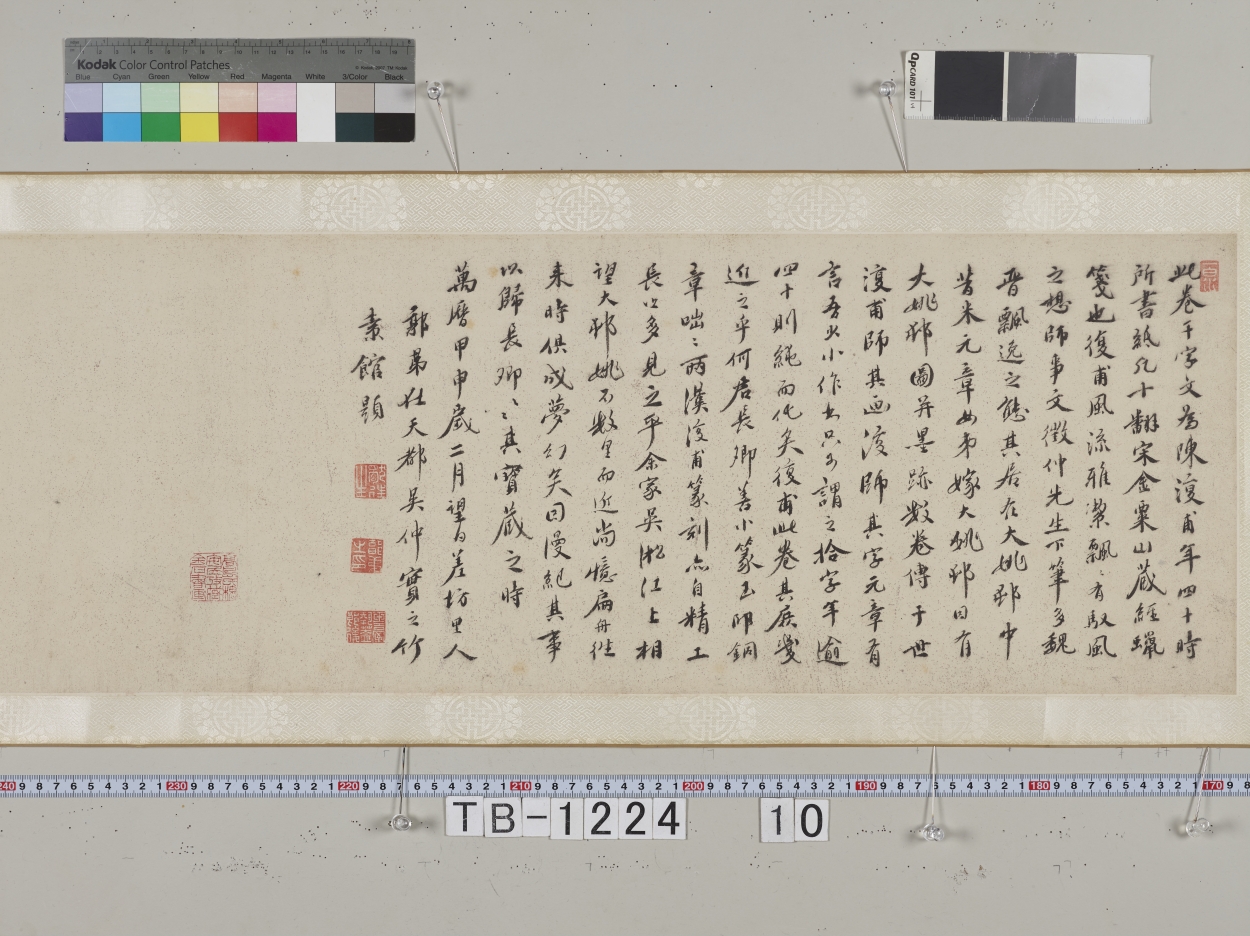 Kodak Color Control Patches
Blue Cyan Green Yellow Red Magenta White 3/Color Black
QPCARD 101
此卷千字文為陳復甫年四十時
所書紙凡十翻宋金粟山藏經蠟
箋也復甫風流雅潔飄〻有馭風
之想師事文徵仲先生下筆多魏
晉飄逸之態其居在大姚邨中
昔米元章女弟嫁大姚邨曰有
大姚邨圖并墨跡數卷傳于世
復甫師其画復師其字元章有
言吾少小作書只可謂之拾字年逾
四十則繩而化矣復甫此卷其庶幾
近之乎何君長卿善小篆玉印銅
章咄〻兩漢復甫篆刻亦自精工
長公多見之乎余家吳淞江上相
望大邨姚不數里而近尚憶扁舟徃
来時俱成夢幻矣因漫紀其事
以歸長卿〻其寶藏之時
萬曆甲申歲二月望日差坊里人
郭弟在天都吳仲實之竹
素館題
240 230 220 210 200 190 180 170
TB-1224 10